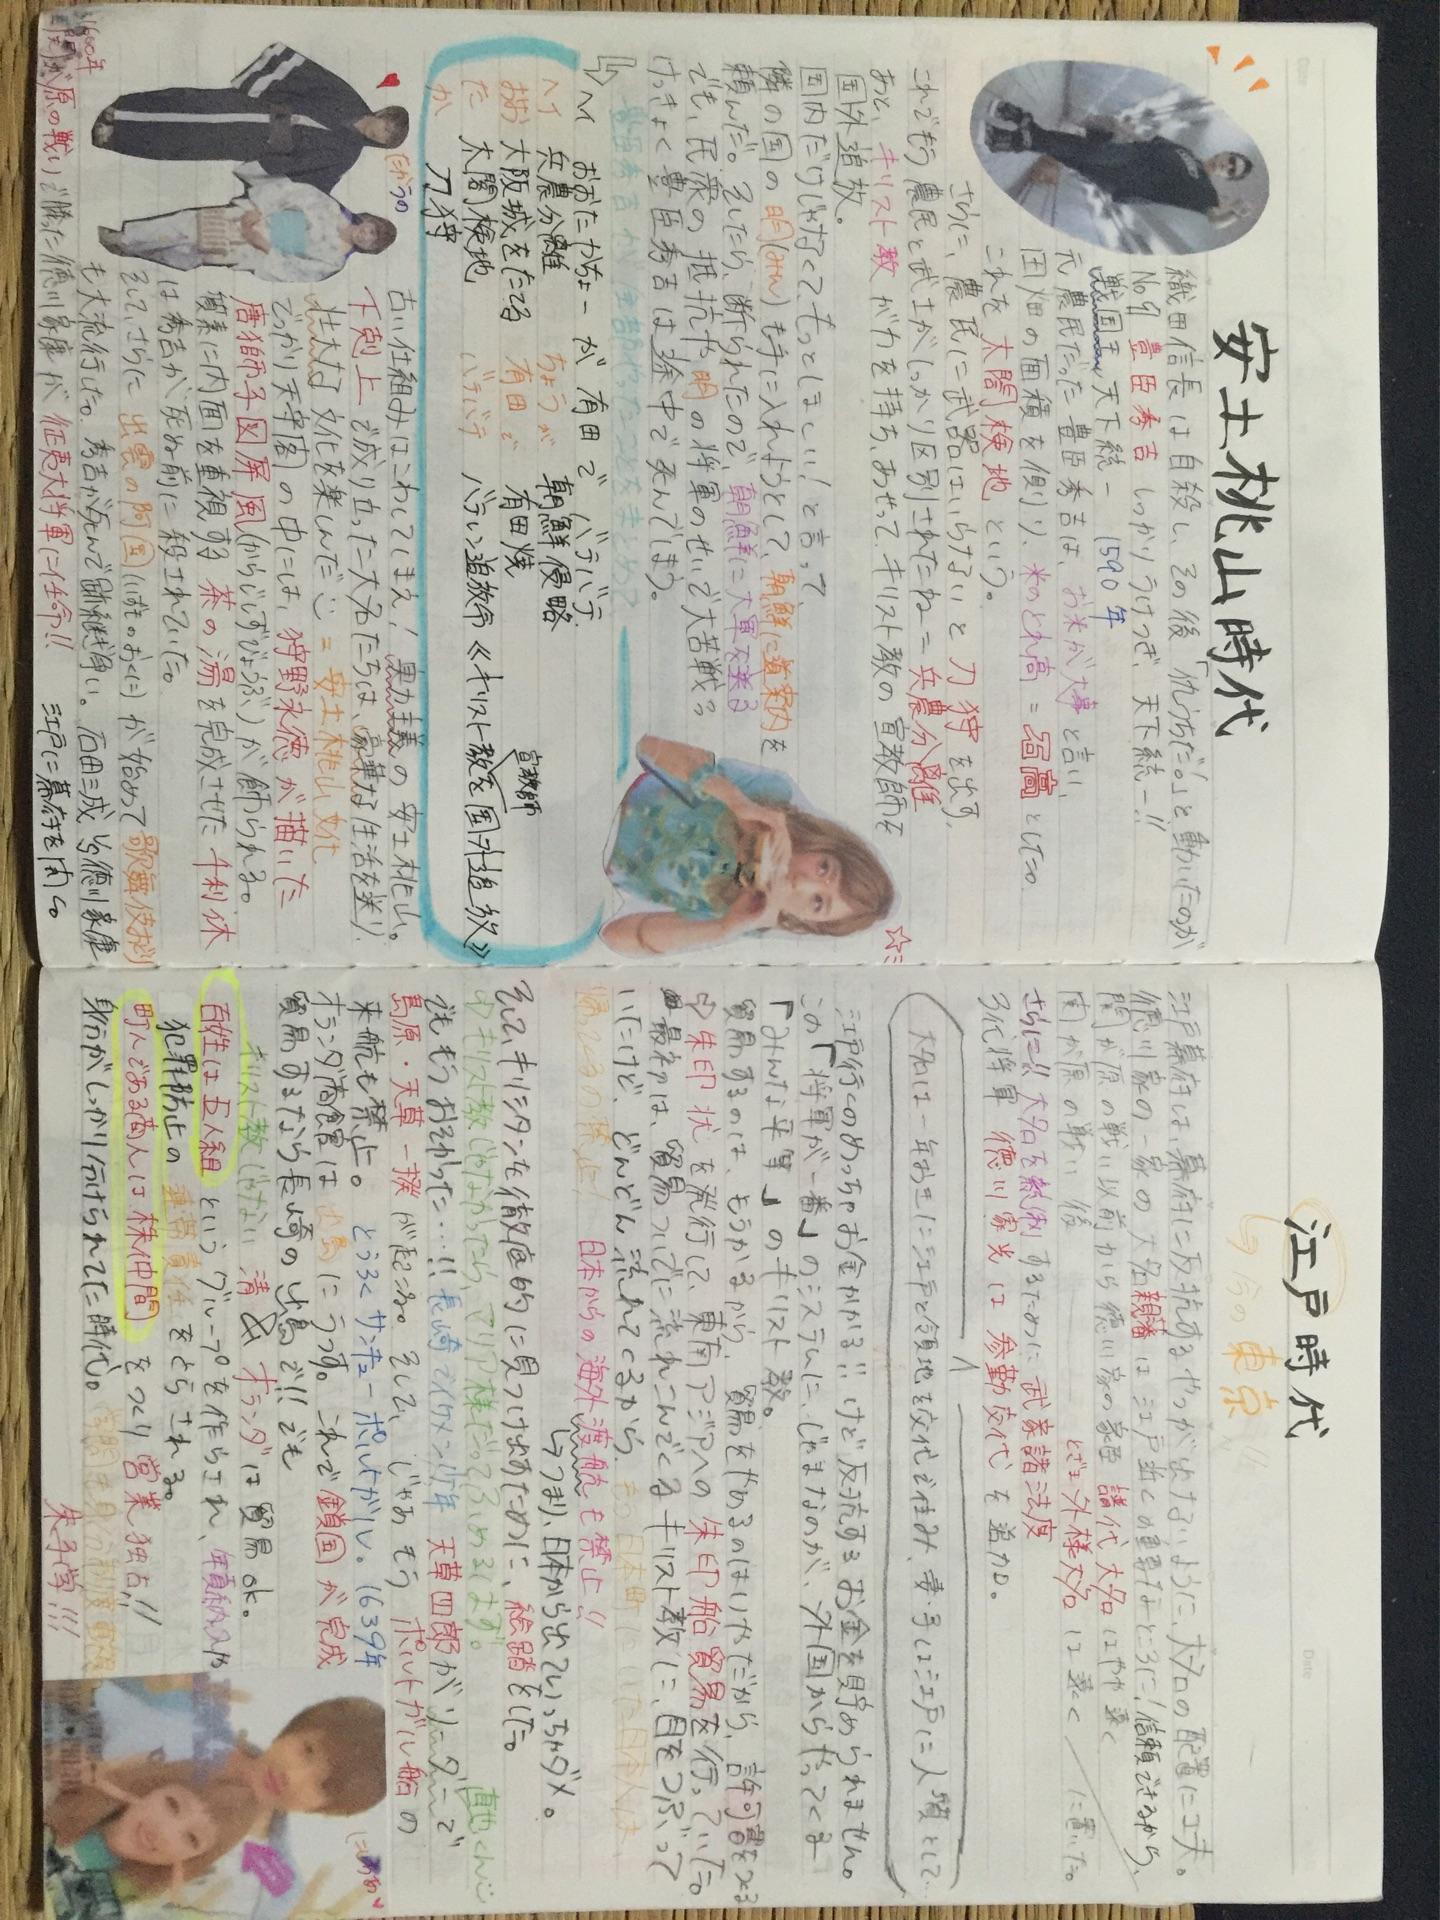 安土桃山時代
織田信長は自殺し、その後「仇うちだ!」と動いたのが
No.1 豊臣秀吉 しっかりうけつぎ、天下統一!!
戦国・天下統一 1590年
元農民だった豊臣秀吉は、お米が大事と言い、
田・畑の面積を測り、米のとれ高=石高とした。
これを太閤検地という。
さらに、農民に武器はいらないと刀狩を出す。
これでもう農民と武士がしっかり区別されたね=兵農分離
あと、キリスト教が力を持ち、あせって、キリスト教の宣教師を
国外追放。
国内だけじゃなくてもっとほしい!と言って、
隣の国の明(みん)も手に入れようとして、朝鮮に道案内を
頼んだ。そしたら、断られたので、朝鮮に大軍を送る
でも、民衆の抵抗や明の将軍のせいで大苦戦っ
けっきょく豊臣秀吉は途中で死んでしまう。
豊臣秀吉が全部やったことをまとめて
ヘイ おおたかちょーが有田でバテバテ
ヘイ 兵農分離
おお 大阪城をたてる
た 太閤検地
か 刀狩
ちょうが 朝鮮侵略
有田で 有田焼
バテバテ バテレン追放令《キリスト教を国外追放》
宣教師
古い仕組みはこわしてしまえ!実力主義の安土桃山。
下剋上で成り立った大名たちは、豪華な生活を送り、
壮大な文化を楽しんだ =安土桃山文化
でっかい天守閣の中には、狩野永徳が描いた
唐獅子図屏風(からじしずびょうぶ)が飾られる。
質素に内面を重視する茶の湯を完成させた千利休
は秀吉が死ぬ前に殺されていた。
そして、さらに出雲の阿国(いずものおくに)が始めて歌舞伎おどり
も大流行した。秀吉が死んで跡継ぎ争い。石田三成 vs 徳川家康
1600年
関が原の戦いで勝った徳川家康が征夷大将軍に任命!!
江戸に幕府を開く。
江戸時代
↳今の東京!!
江戸幕府は、幕府に反抗するやつが出ないように、大名の配置に工夫。
徳川家の一家の大名親藩は江戸近くの重要なところに!信頼できるから、
関が原の戦い以前から徳川家の家臣 譜代大名はやや遠く
関が原の戦い後 とざま外様大名は遠く に置いた。
さらに!!大名を統制するために武家諸法度
3代将軍 徳川家光は参勤交代を追加。
大名は一年おきに江戸と領地を交代で住み、妻・子は江戸に人質として…
江戸行くのめっちゃお金かかる!!けど反抗するお金を貯められません。
この「将軍が一番」のシステムに、じゃまなのが、外国からやってくる
「みんな平等」のキリスト教。
貿易するのは、もうかるから、貿易をやめるのはいやだから、許可書をつくる
⇨朱印状を発行して、東南アジアへの朱印船貿易を行っていた。
最初は、貿易ついでに流れこんでくるキリスト教に、目をつぶって
いたけど、どんどん流れてくるから、
日本からの海外渡航も禁止!!
↳つまり、日本から出ていっちゃダメ。
そして、キリシタンを徹底的に見つけ出すために、絵踏をした。
でももうおそかった…!!長崎でイケメン少年 天草四郎がリーダーで
島原・天草一揆が起こる。そして、じゃあもう ポルトガル船の
来航も禁止。とうろくサンキューポルトガル。(1639年
オランダ商館は出島にうつす。これで鎖国が完成
貿易するなら長崎の出島で!!でも
キリスト教じゃない清&オランダは貿易ok。
百姓は五人組というグループを作らされ、年貢納入や
犯罪防止の連帯責任をとらされる。
町人である商人は株仲間をつくり営業独占!!
身分がしっかり分けられてた時代。
朱子学!!!